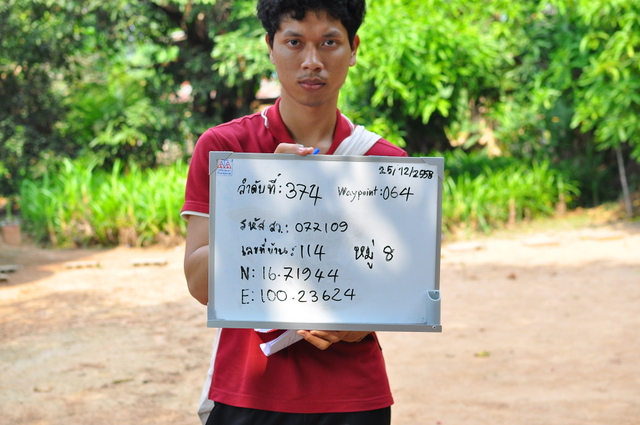 25/12/2558
ลำดับที่: 374 Waypoint: 064
รหัส สว.: 077109
เลขที่บ้าน: 114 หมู่ 8
N: 16.71944
E: 100.23624